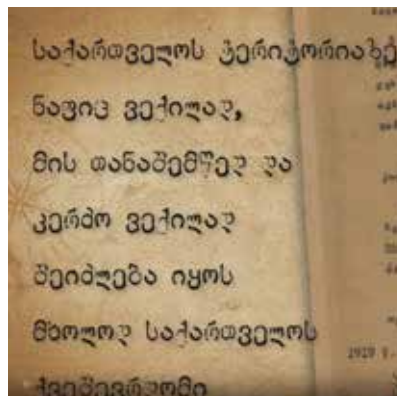 საქართველოს ტერიტორიაზე
ნაფიც ვექილად,
მის თანაშემწედ და
კერძო ვექილად
შეიძლება იყოს
მხოლოდ საქართველოს
ქვეშევრდომი